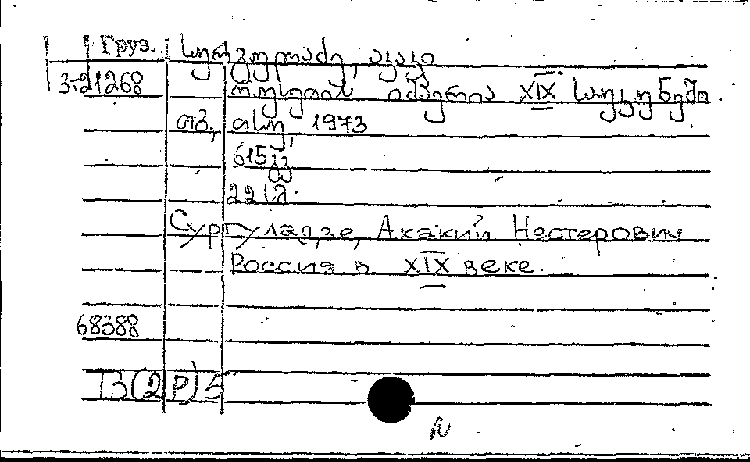 Груз. სურგულაძე, აკაკი
3-21268 რუსეთის იმპერია XIX საუკუნეში.
თბ., თსუ, 1973
615გვ
22სმ.
Сургуладзе, Акакий Нестерович
Россия в XIX веке.
68388
T3(2P)5